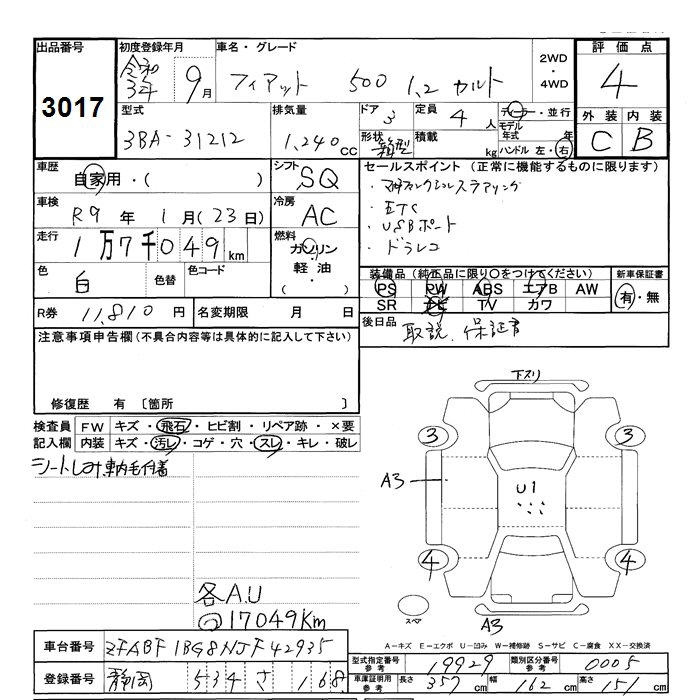 出品番号
3017
初度登録年月
令和3年 9月
車名・グレード
フィアット 500 1.2 カルト
2WD
・
4WD
評価点
4
外装 内装
C B
型式
3BA-31212
排気量
1,240cc
ドア 3
形状 箱型
定員 4人
積載 kg
ディーラー・並行
モデル年式 年
ハンドル 左・右
車歴
自家用・( )
シフト
SQ
セールスポイント (正常に機能するものに限ります)
・マルチファンクションステアリング
・ETC
・USBポート
・ドラレコ
車検
R9年 1月(23日)
冷房
AC
走行
1万7千049km
燃料
ガソリン
軽油・
( )
色
白
色替
色コード
装備品 (純正品に限り○をつけてください)
PS PW ABS エアB AW
SR ナビ TV カワ
新車保証書
有・無
R券 11,810円
名変期限 月 日
後日品 取説、保証書
注意事項申告欄(不具合内容等は具体的に記入して下さい)
修復歴 有 〔箇所 〕
検査員記入欄
FW キズ・飛石・ヒビ割・リペア跡・×要
内装 キズ・汚レ・コゲ・穴・スレ・キレ・破レ
シートしみ 車内毛付着
各A.U
◎17049Km
下スリ
3 3
A3
U1
4 4
スペア
A3
A-キズ E-エクボ U-凹み W-補修跡 S-サビ C-腐食 XX-交換済
車台番号 ZFABF1BG8NJF42935
登録番号 静岡 534 さ 168
型式指定番号 参考 19929
類別区分番号 参考 0005
車庫証明用 参考 長さ 357cm 幅 162cm 高さ 151cm